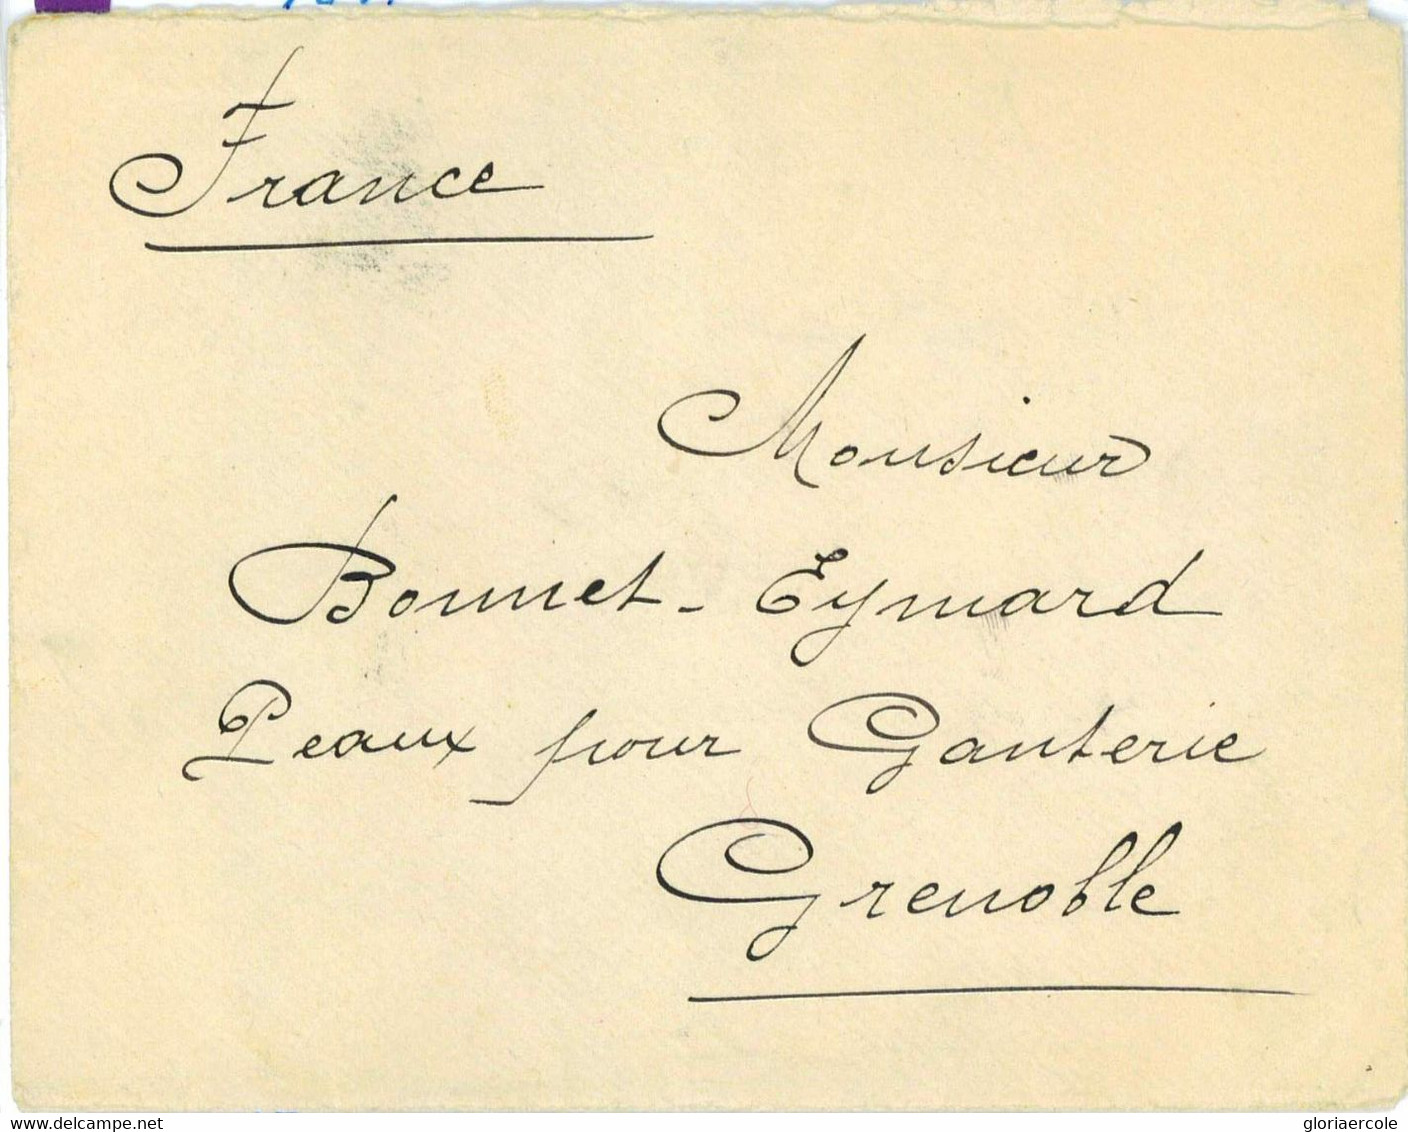 France
Monsieur
Bonnet-Eymard
Peaux pour Ganterie
Grenoble
www.delcampe.net
gloriaercole